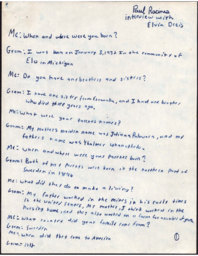 Paul Racine
interview with
Elvia Davis
Me: When and where were you born?
Gram: I was born on January 2, 1932 in the community of
Elu in Michigan
Me: Do you have any brothers and sisters?
Gram: I had one sister and I had one brother
who died three years ago.
Me: What were your parents names?
Gram: My mothers maiden name was and my
fathers name was Palmer
Me: When and where were your parents born?
Gram: Both of my parents were born in
Sweden in 1890
Me: What did they do to make a living?
Gram: My father worked in the mines in his early times
in the United States, My mother, I think worked in the
nursing home and they also worked on a farm for number of years.
Me: What country did your family come from?
Gram: Sweden
Me: When did they come to America
Gram:
1